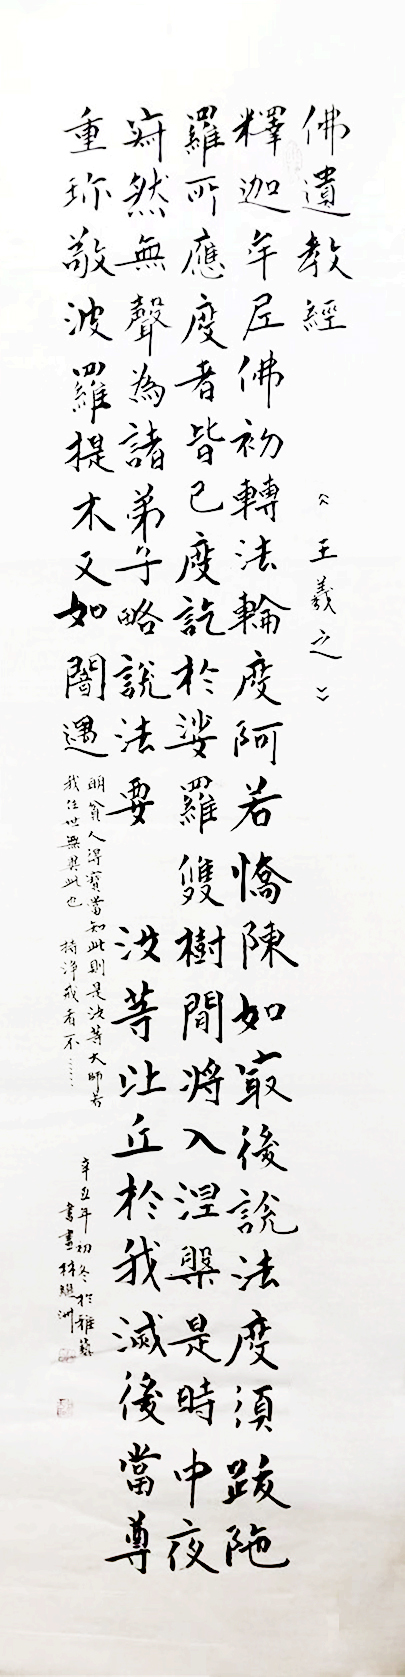 佛遺教經 《王羲之》
釋迦牟尼佛初轉法輪度阿若憍陳如㝡後說法度須跋陁
羅所應度者皆已度訖於娑羅雙樹間將入涅槃是時中夜
寂然無聲為諸弟子略說法要 汝等比丘於我滅後當尊
重珍敬波羅提木叉如闇遇
明貧人得寶當知此則是汝等大師若
我住世無異此也 持淨戒者不……
辛丑年初冬於雅藝
書畫林洲